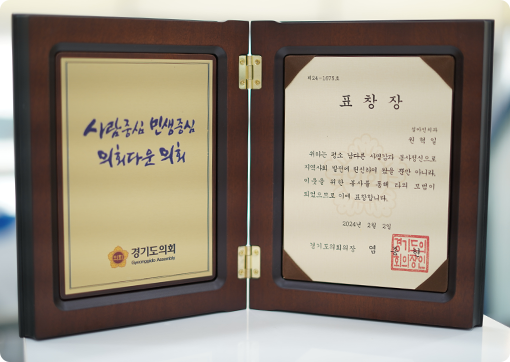 사람중심 민생중심
의회다운 의회
경기도의회
Gyeonggido Assembly
제24-1075호
표창장
원혁일
위하는 평소 남다른 사명감과 봉사정신으로
지역사회 발전에 헌신하여 왔을 뿐만 아니라,
이웃을 위한 봉사를 통해 타의 모범이
되었으므로 이에 표창합니다.
2024년 2월 2일
경기도의회의장 염
경기도의
회의장인